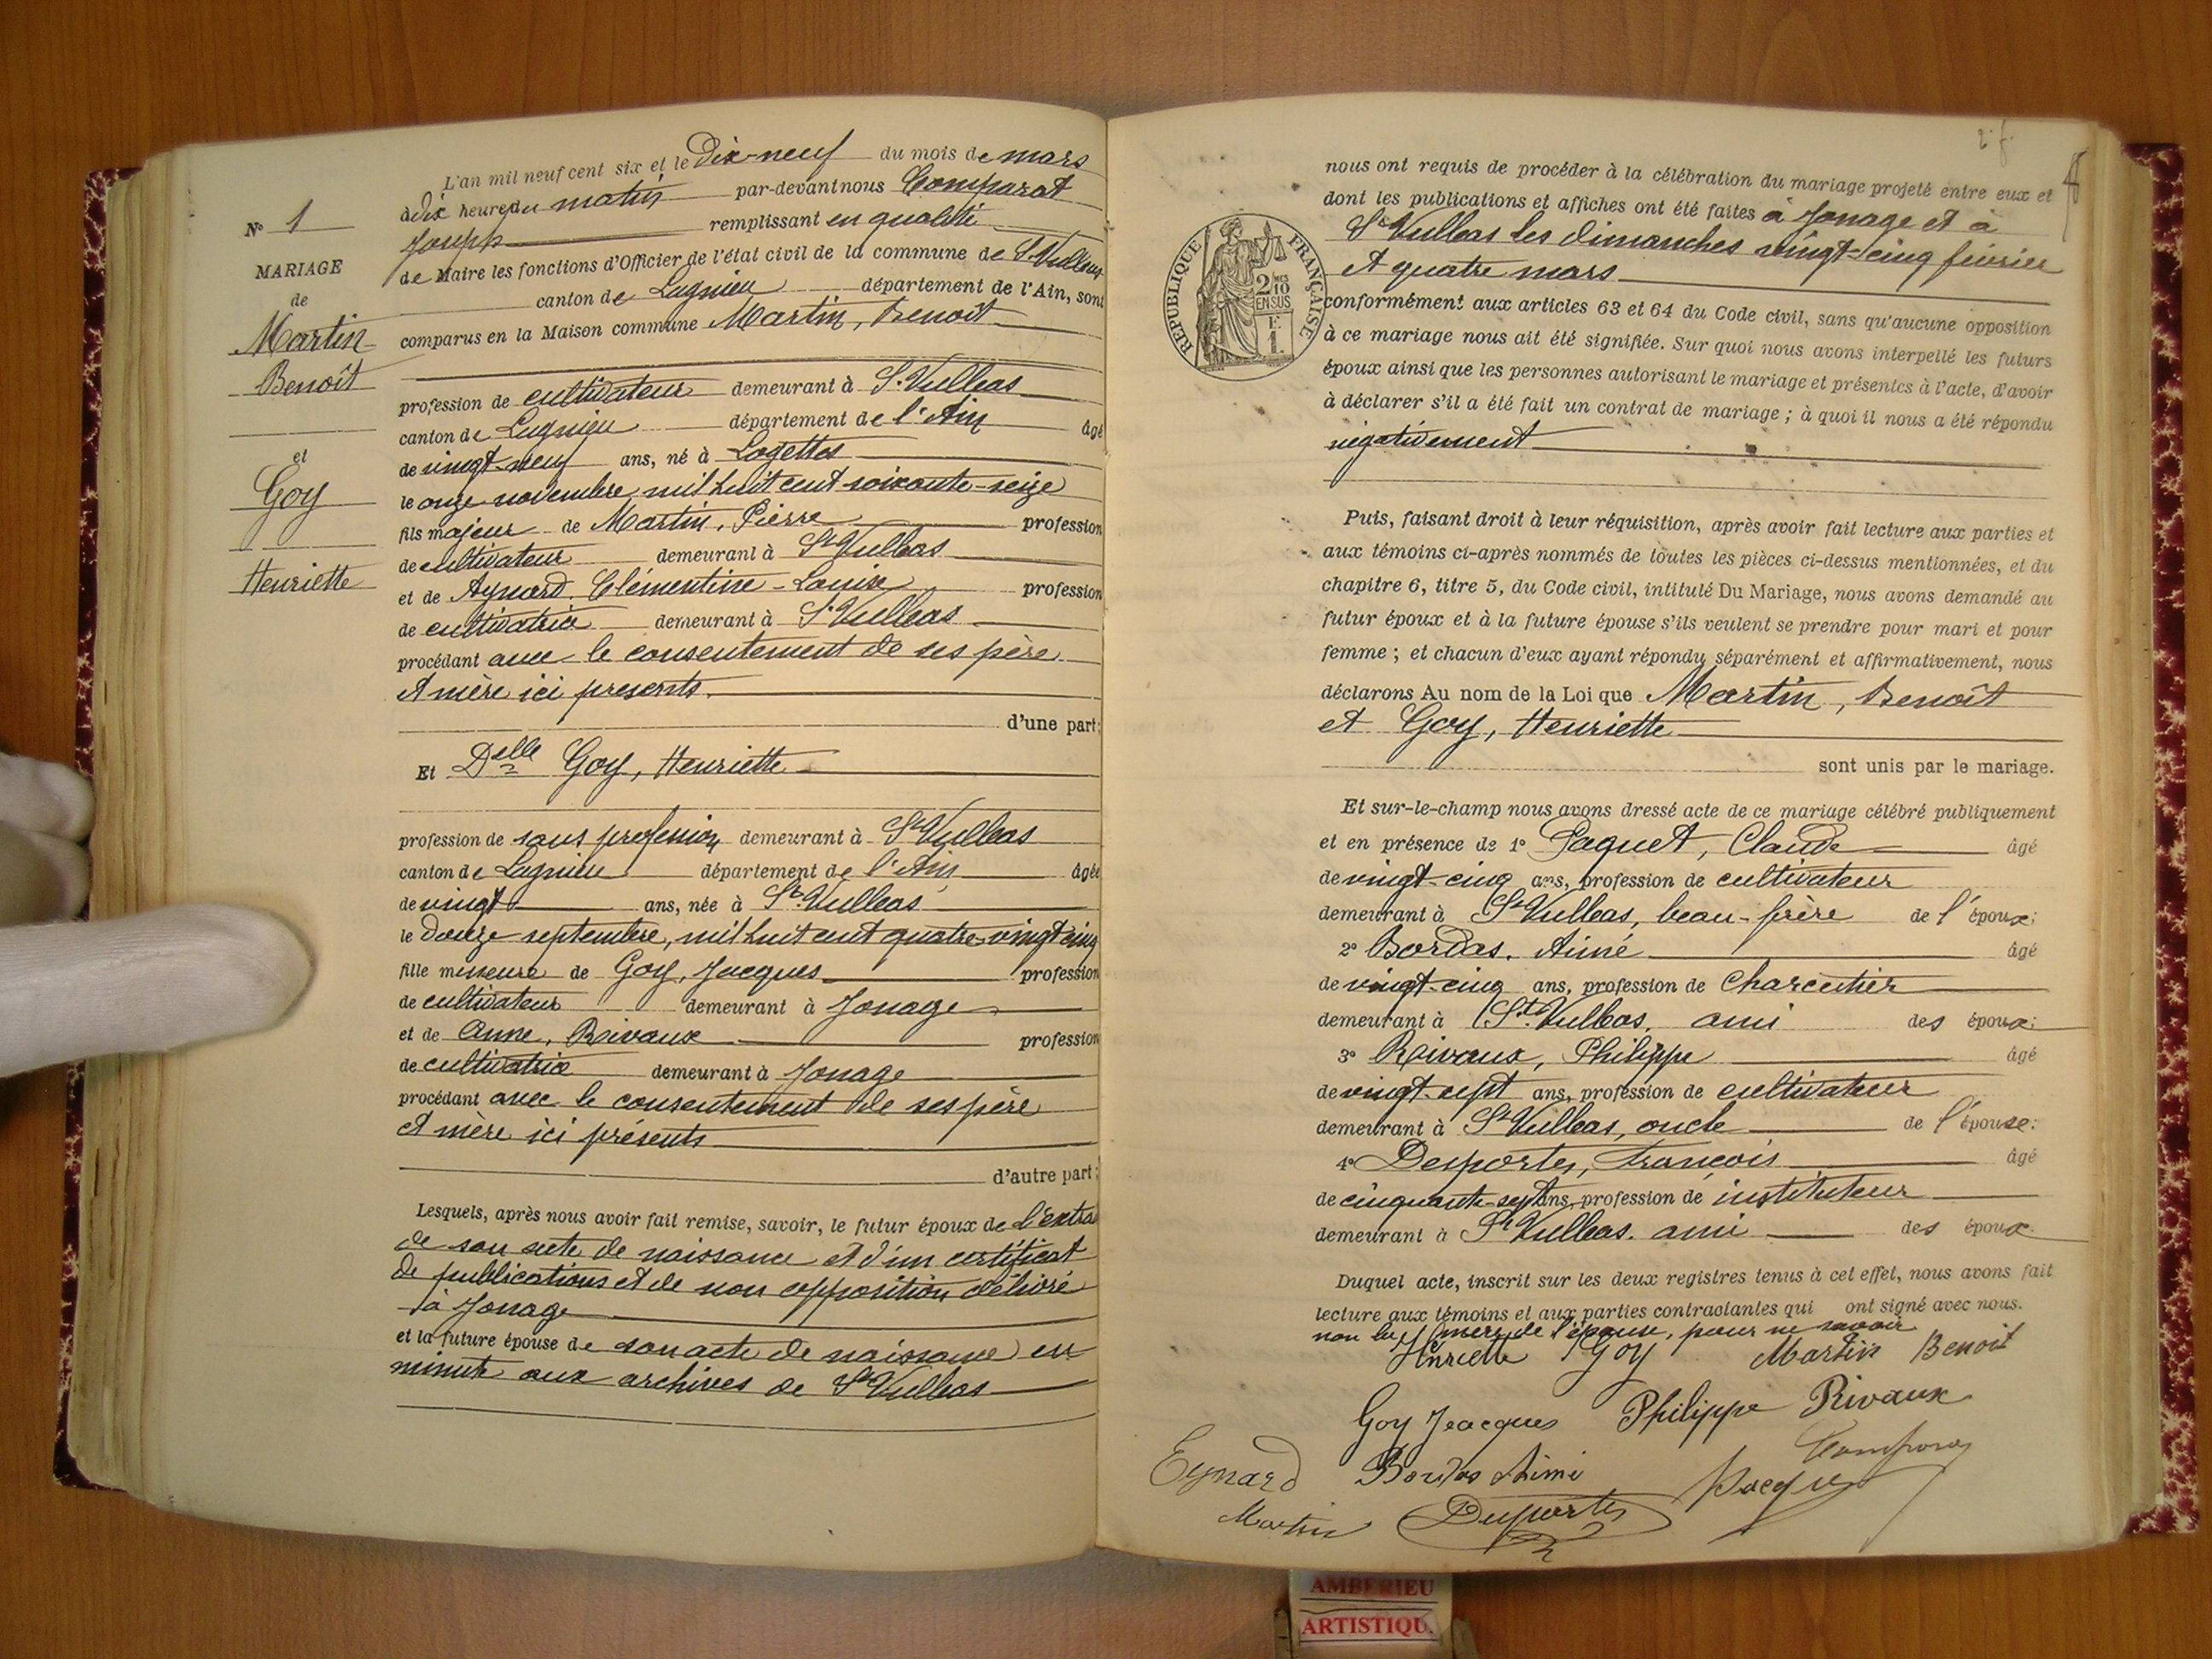 L'an mil neuf cent six et le Dix-neuf du mois de mars
à dix heures du matin par-devant nous Comparat
Joseph remplissant en qualité
de Maire les fonctions d'Officier de l'état civil de la commune de St Vulbas
canton de Lagnieu département de l'Ain, sont
comparus en la Maison commune Martin, Benoît
profession de cultivateur demeurant à St Vulbas
canton de Lagnieu département de l'Ain âgé
de vingt-neuf ans, né à Loyettes
le onze novembre mil huit cent soixante-seize
fils majeur de Martin, Pierre profession
de cultivateur demeurant à St Vulbas
et de Aynard, Clémentine-Louise profession
de cultivatrice demeurant à St Vulbas
procédant avec le consentement de ses père
et mère ici presents.
d'une part;
Et Delle Goy, Henriette
profession de sans profession demeurant à St Vulbas
canton de Lagnieu département de l'Ain âgée
de vingt ans, née à St Vulbas
le douze septembre, mil huit cent quatre-vingt cinq
fille mineure de Goy, Jacques profession
de cultivateur demeurant à Jonage
et de Anne, Rivaux profession
de cultivatrice demeurant à Jonage
procédant avec le consentement de ses père
et mère ici présents
d'autre part;
Lesquels, après nous avoir fait remise, savoir, le futur époux de l'extrait
de son acte de naissance et d'un certificat
de publications et de non opposition délivré
à Jonage
et la future épouse de son acte de naissance en
minute aux archives de St Vulbas
No 1
MARIAGE
de
Martin
Benoît
et
Goy
Henriette
2. f.
nous ont requis de procéder à la célébration du mariage projeté entre eux et
dont les publications et affiches ont été faites à Jonage et à
St Vulbas les dimanches vingt-cinq février
et quatre mars
conformément aux articles 63 et 64 du Code civil, sans qu'aucune opposition
à ce mariage nous ait été signifiée. Sur quoi nous avons interpellé les futurs
époux ainsi que les personnes autorisant le mariage et présentes à l'acte, d'avoir
à déclarer s'il a été fait un contrat de mariage ; à quoi il nous a été répondu
négativement
Puis, faisant droit à leur réquisition, après avoir fait lecture aux parties et
aux témoins ci-après nommés de toutes les pièces ci-dessus mentionnées, et du
chapitre 6, titre 5, du Code civil, intitulé Du Mariage, nous avons demandé au
futur époux et à la future épouse s'ils veulent se prendre pour mari et pour
femme ; et chacun d'eux ayant répondu séparément et affirmativement, nous
déclarons Au nom de la Loi que Martin, Benoît
et Goy, Henriette
sont unis par le mariage.
Et sur-le-champ nous avons dressé acte de ce mariage célébré publiquement
et en présence de 1o Paquet, Claude âgé
de vingt-cinq ans, profession de cultivateur
demeurant à St Vulbas, beau-frère de l'époux;
2o Bordas, Aimé âgé
de vingt-cinq ans, profession de Charcutier
demeurant à St Vulbas, ami des époux;
3o Rivaux, Philippe âgé
de vingt-sept ans, profession de cultivateur
demeurant à St Vulbas, oncle de l'épouse;
4o Desportes, François âgé
de cinquante-sept ans, profession de instituteur
demeurant à St Vulbas. ami des époux.
Duquel acte, inscrit sur les deux registres tenus à cet effet, nous avons fait
lecture aux témoins et aux parties contractantes qui ont signé avec nous.
non la mère de l'épouse, pour ne savoir
Henriette Goy Martin Benoit
Goy Jeacques Philippe Rivaux
Eynard Bordas Aimé Comparat
Martin Desportes Pacquet
RÉPUBLIQUE FRANÇAISE
2/10
EN SUS
E
1.
AMBERIEU
ARTISTIQU